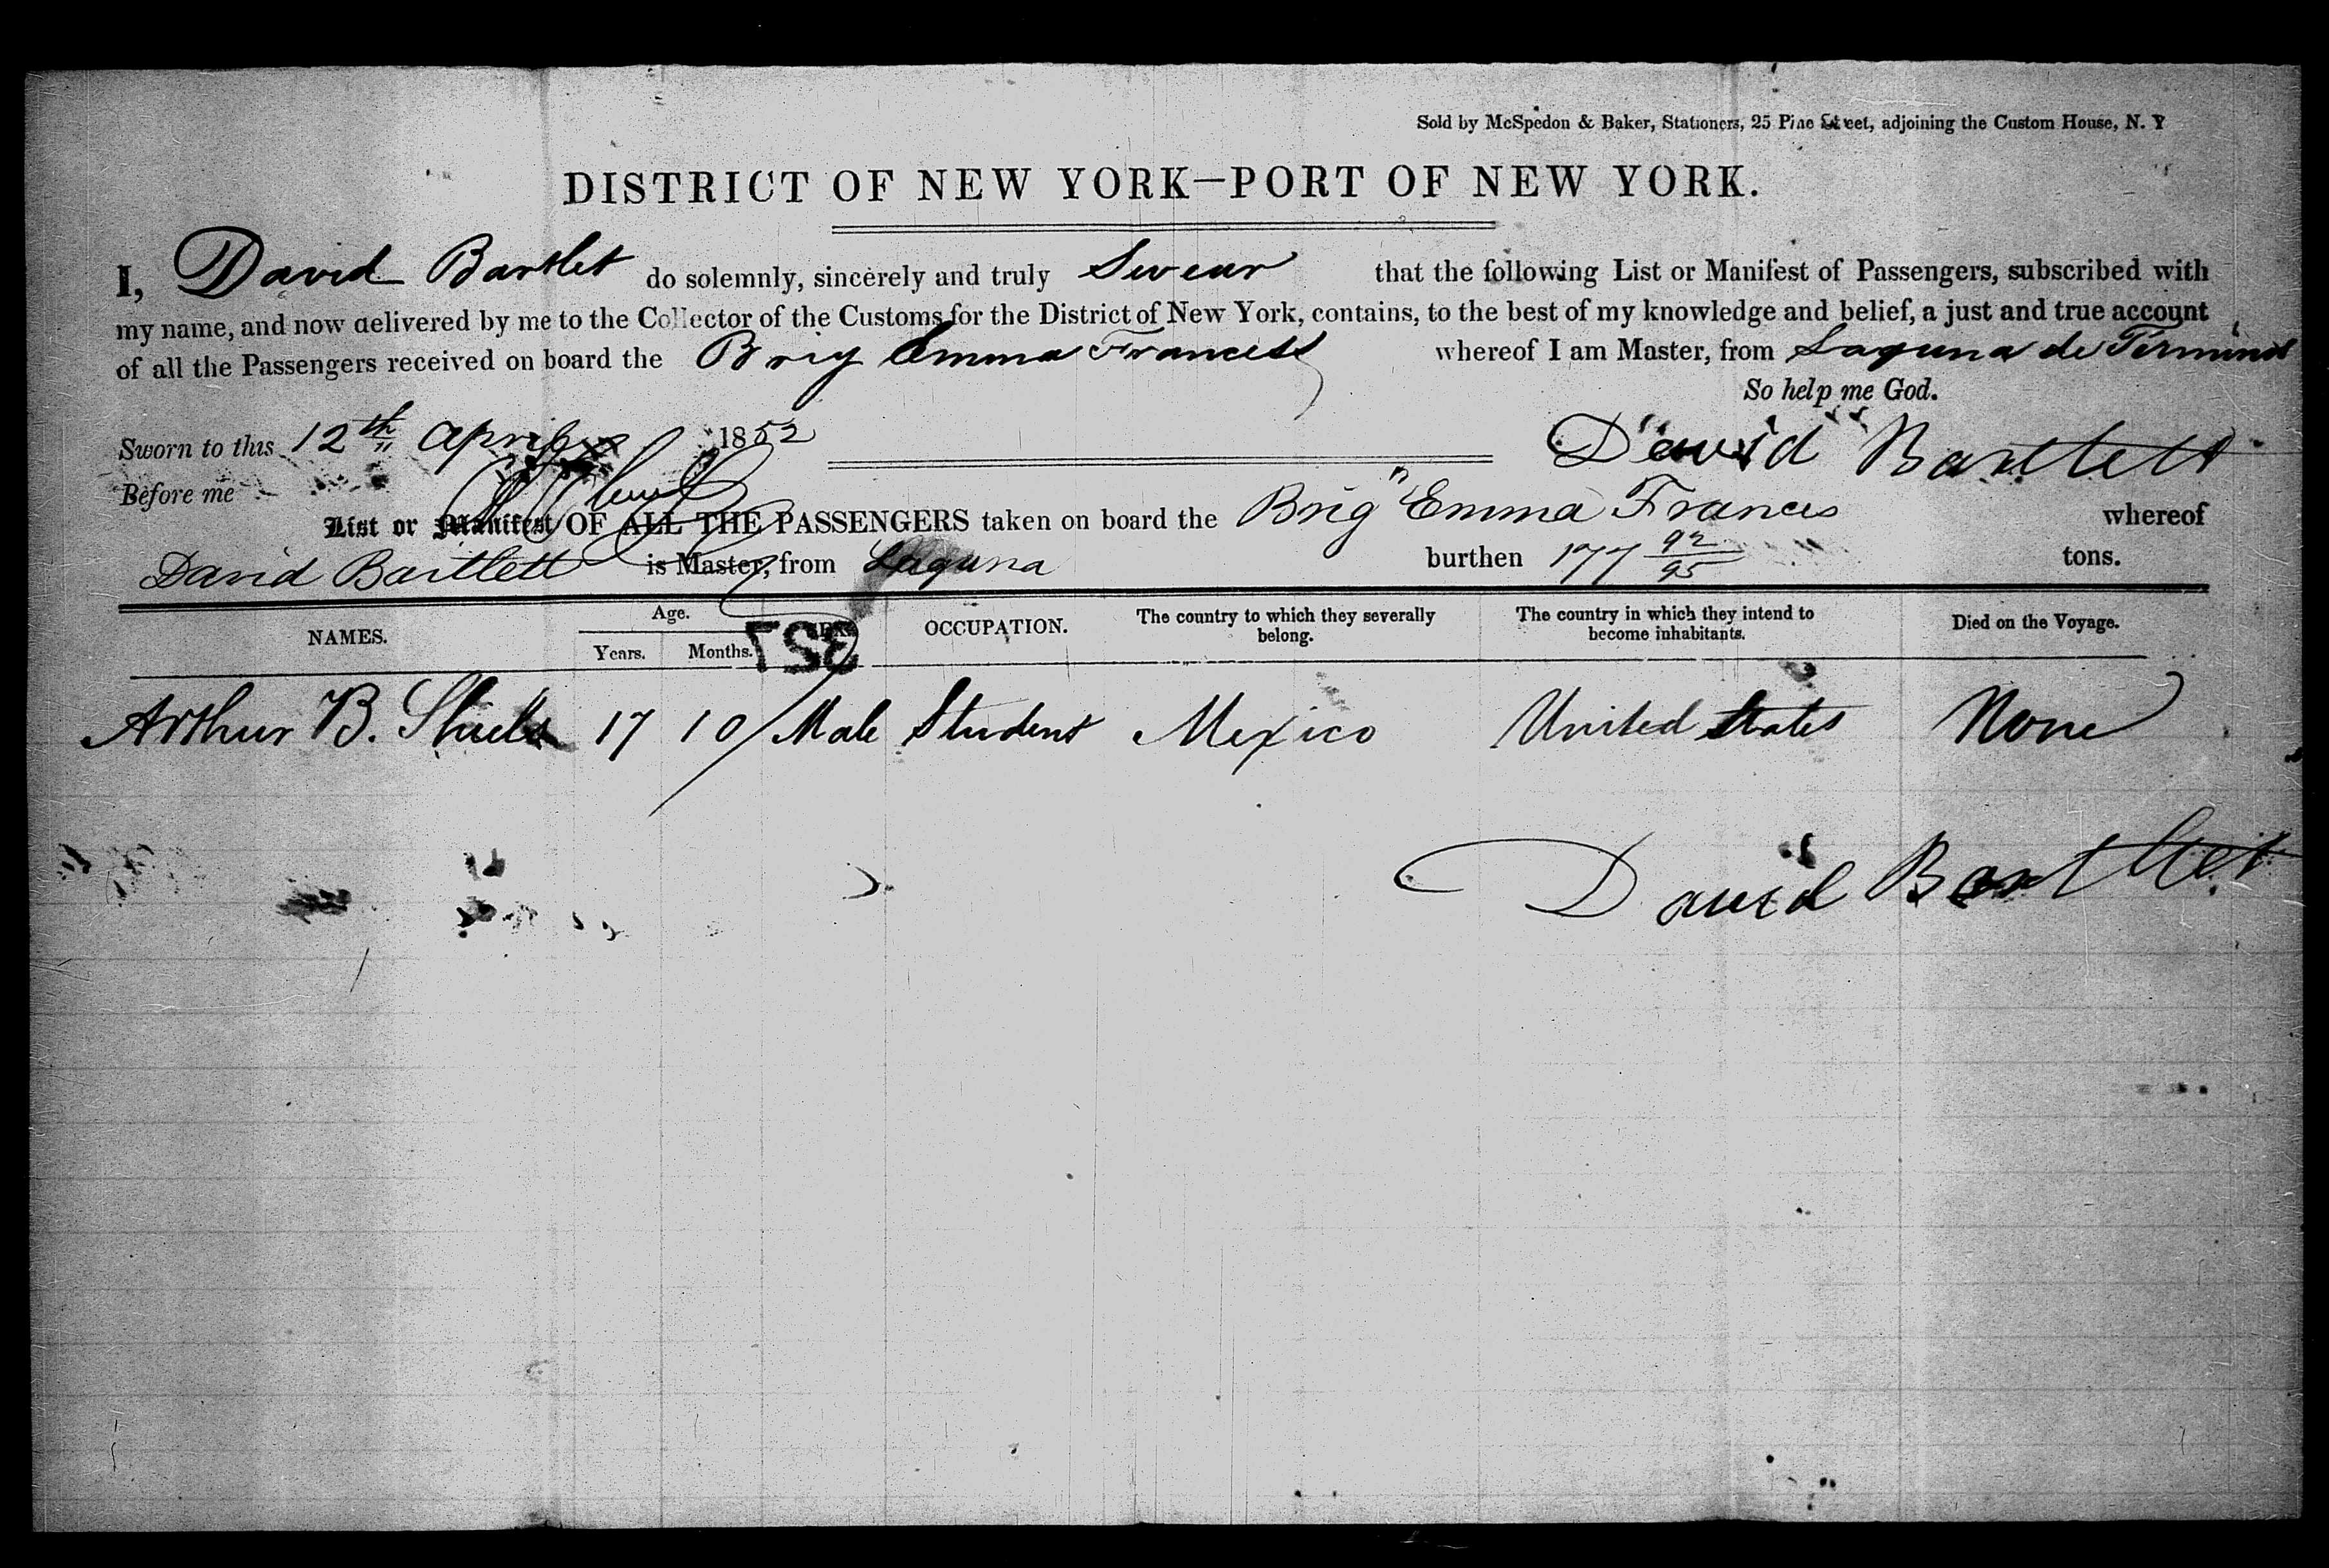 Sold by McSpedon & Baker, Stationers, 25 Pine Street, adjoining the Custom House, N. Y
DISTRICT OF NEW YORK—PORT OF NEW YORK.
I, David Bartlet do solemnly, sincerely and truly Swear that the following List or Manifest of Passengers, subscribed with
my name, and now delivered by me to the Collector of the Customs for the District of New York, contains, to the best of my knowledge and belief, a just and true account
of all the Passengers received on board the Brig Emma Francess whereof I am Master, from Laguna de Terminos
So help me God.
Sworn to this 12th April 1852 David Bartlett
Before me
List or Manifest OF ALL THE PASSENGERS taken on board the Brig "Emma Frances whereof
David Bartlett is Master, from Laguna burthen 177 92/95 tons.
NAMES. Age. Years. Months. SEX OCCUPATION. The country to which they severally belong. The country in which they intend to become inhabitants. Died on the Voyage.
327
Arthur B. Shiels 17 10 / Male Student Mexico United States None
David Bartlett